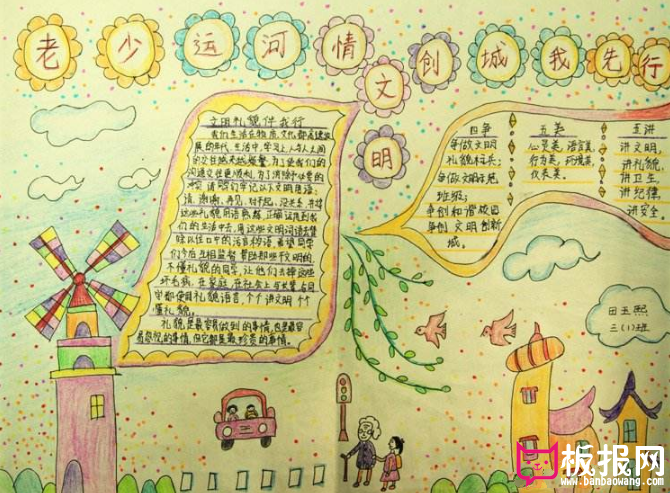 老少运河情
文明
创城我先行
文明礼貌伴我行
我们生活在物质、文化都高速发
展的年代,生活中,学习上,人与人之间
的交往越来越频繁,为了使我们的
沟通交往更顺利,为了消除不必要的
请,谢谢,再见,对不起,没关系,并将
们的生活中去,用这些文明词语去替
们今后互相监督,帮助那些不文明的,
不懂礼貌的同学,让他们去掉这些
坏毛病,在家庭,在社会上与长辈
都使用礼貌语言,个个讲文明,个个
懂礼貌。
礼貌是最容易做到的事情,也是最容
易忽视的事情,但它却是最珍贵的事情。
四争
争做文明
礼貌标兵;
争做文明示范
班级;
争创和谐校园
争创文明创新
城。
五美
心灵美,语言美,
行为美,环境美,
仪表美。
五讲
讲文明,
讲礼貌,
讲卫生,
讲纪律,
讲安全
田玉熙
三(1)班
板报网
www.banbaowang.com